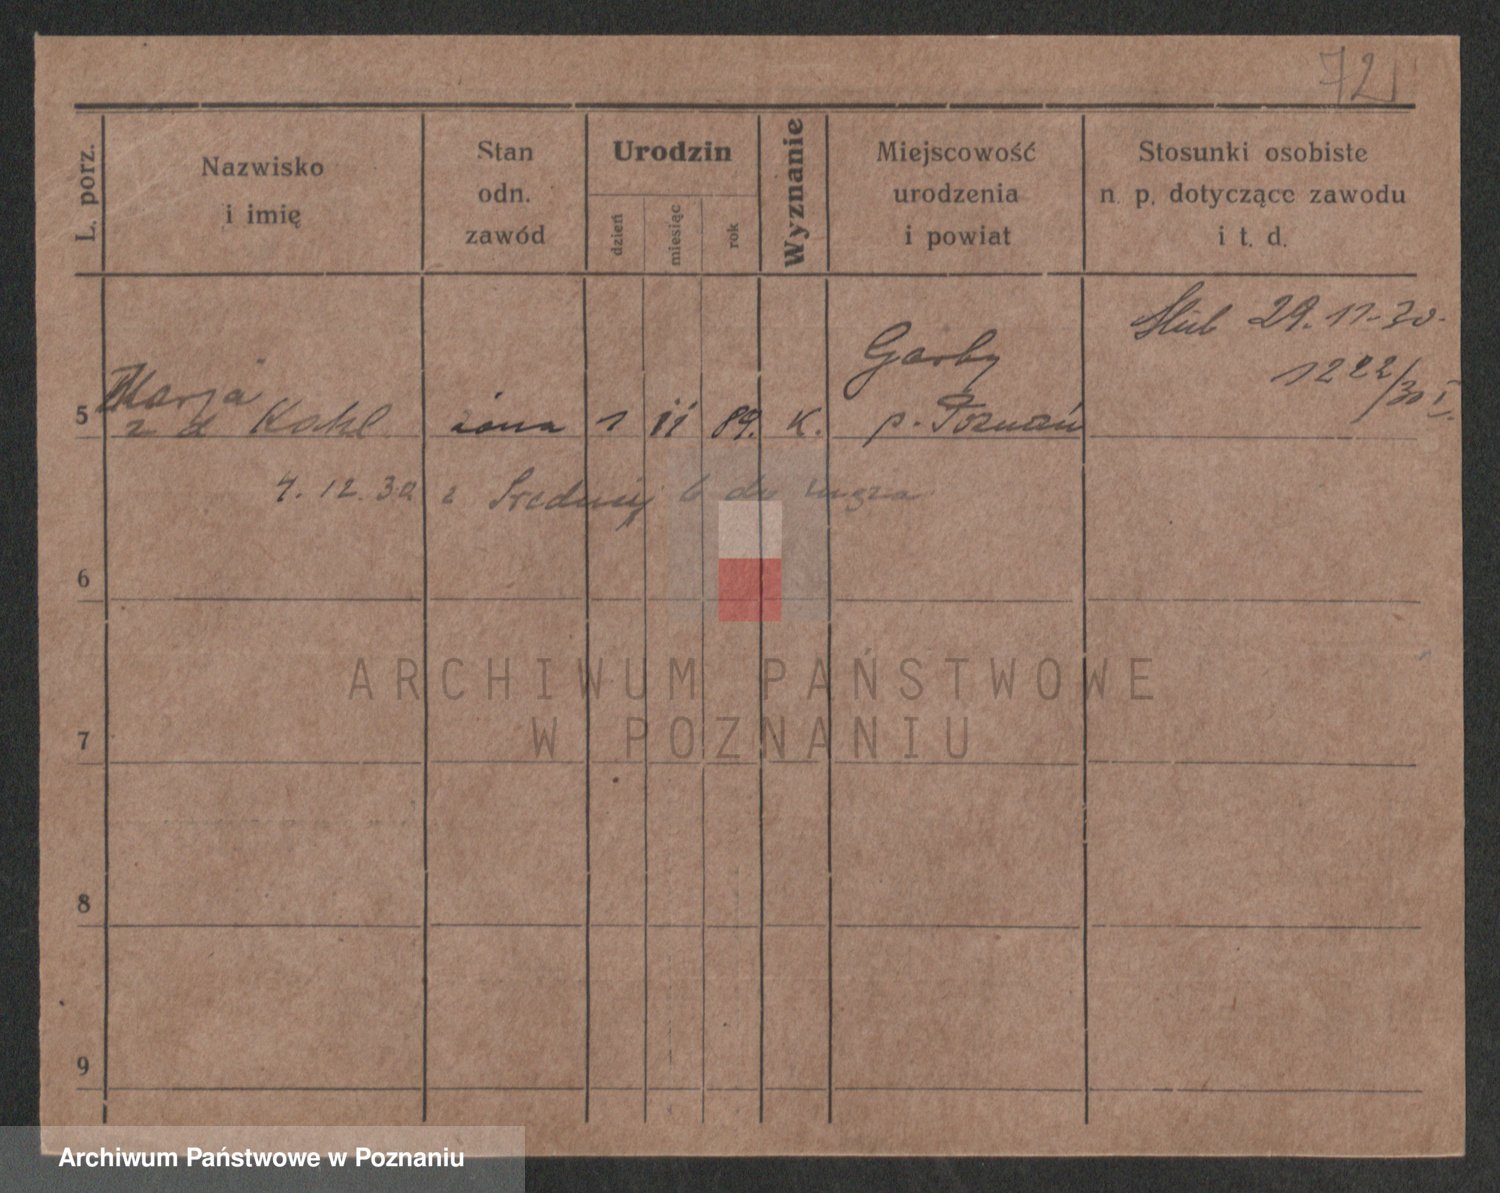 72
L. porz.
Nazwisko
i imię
Stan
odn.
zawód
Urodzin
dzień
miesiąc
rok
Wyznanie
Miejscowość
urodzenia
i powiat
Stosunki osobiste
n. p. dotyczące zawodu
i t. d.
Ślub 29.11.30.
1222/30 I.
5 Marja
z d Kahl żona 1 11 89. K. Garby
p. Poznań
4.12.30 z Średniej 6 do męża
6
7
8
9
ARCHIWUM PAŃSTWOWE
W POZNANIU
Archiwum Państwowe w Poznaniu